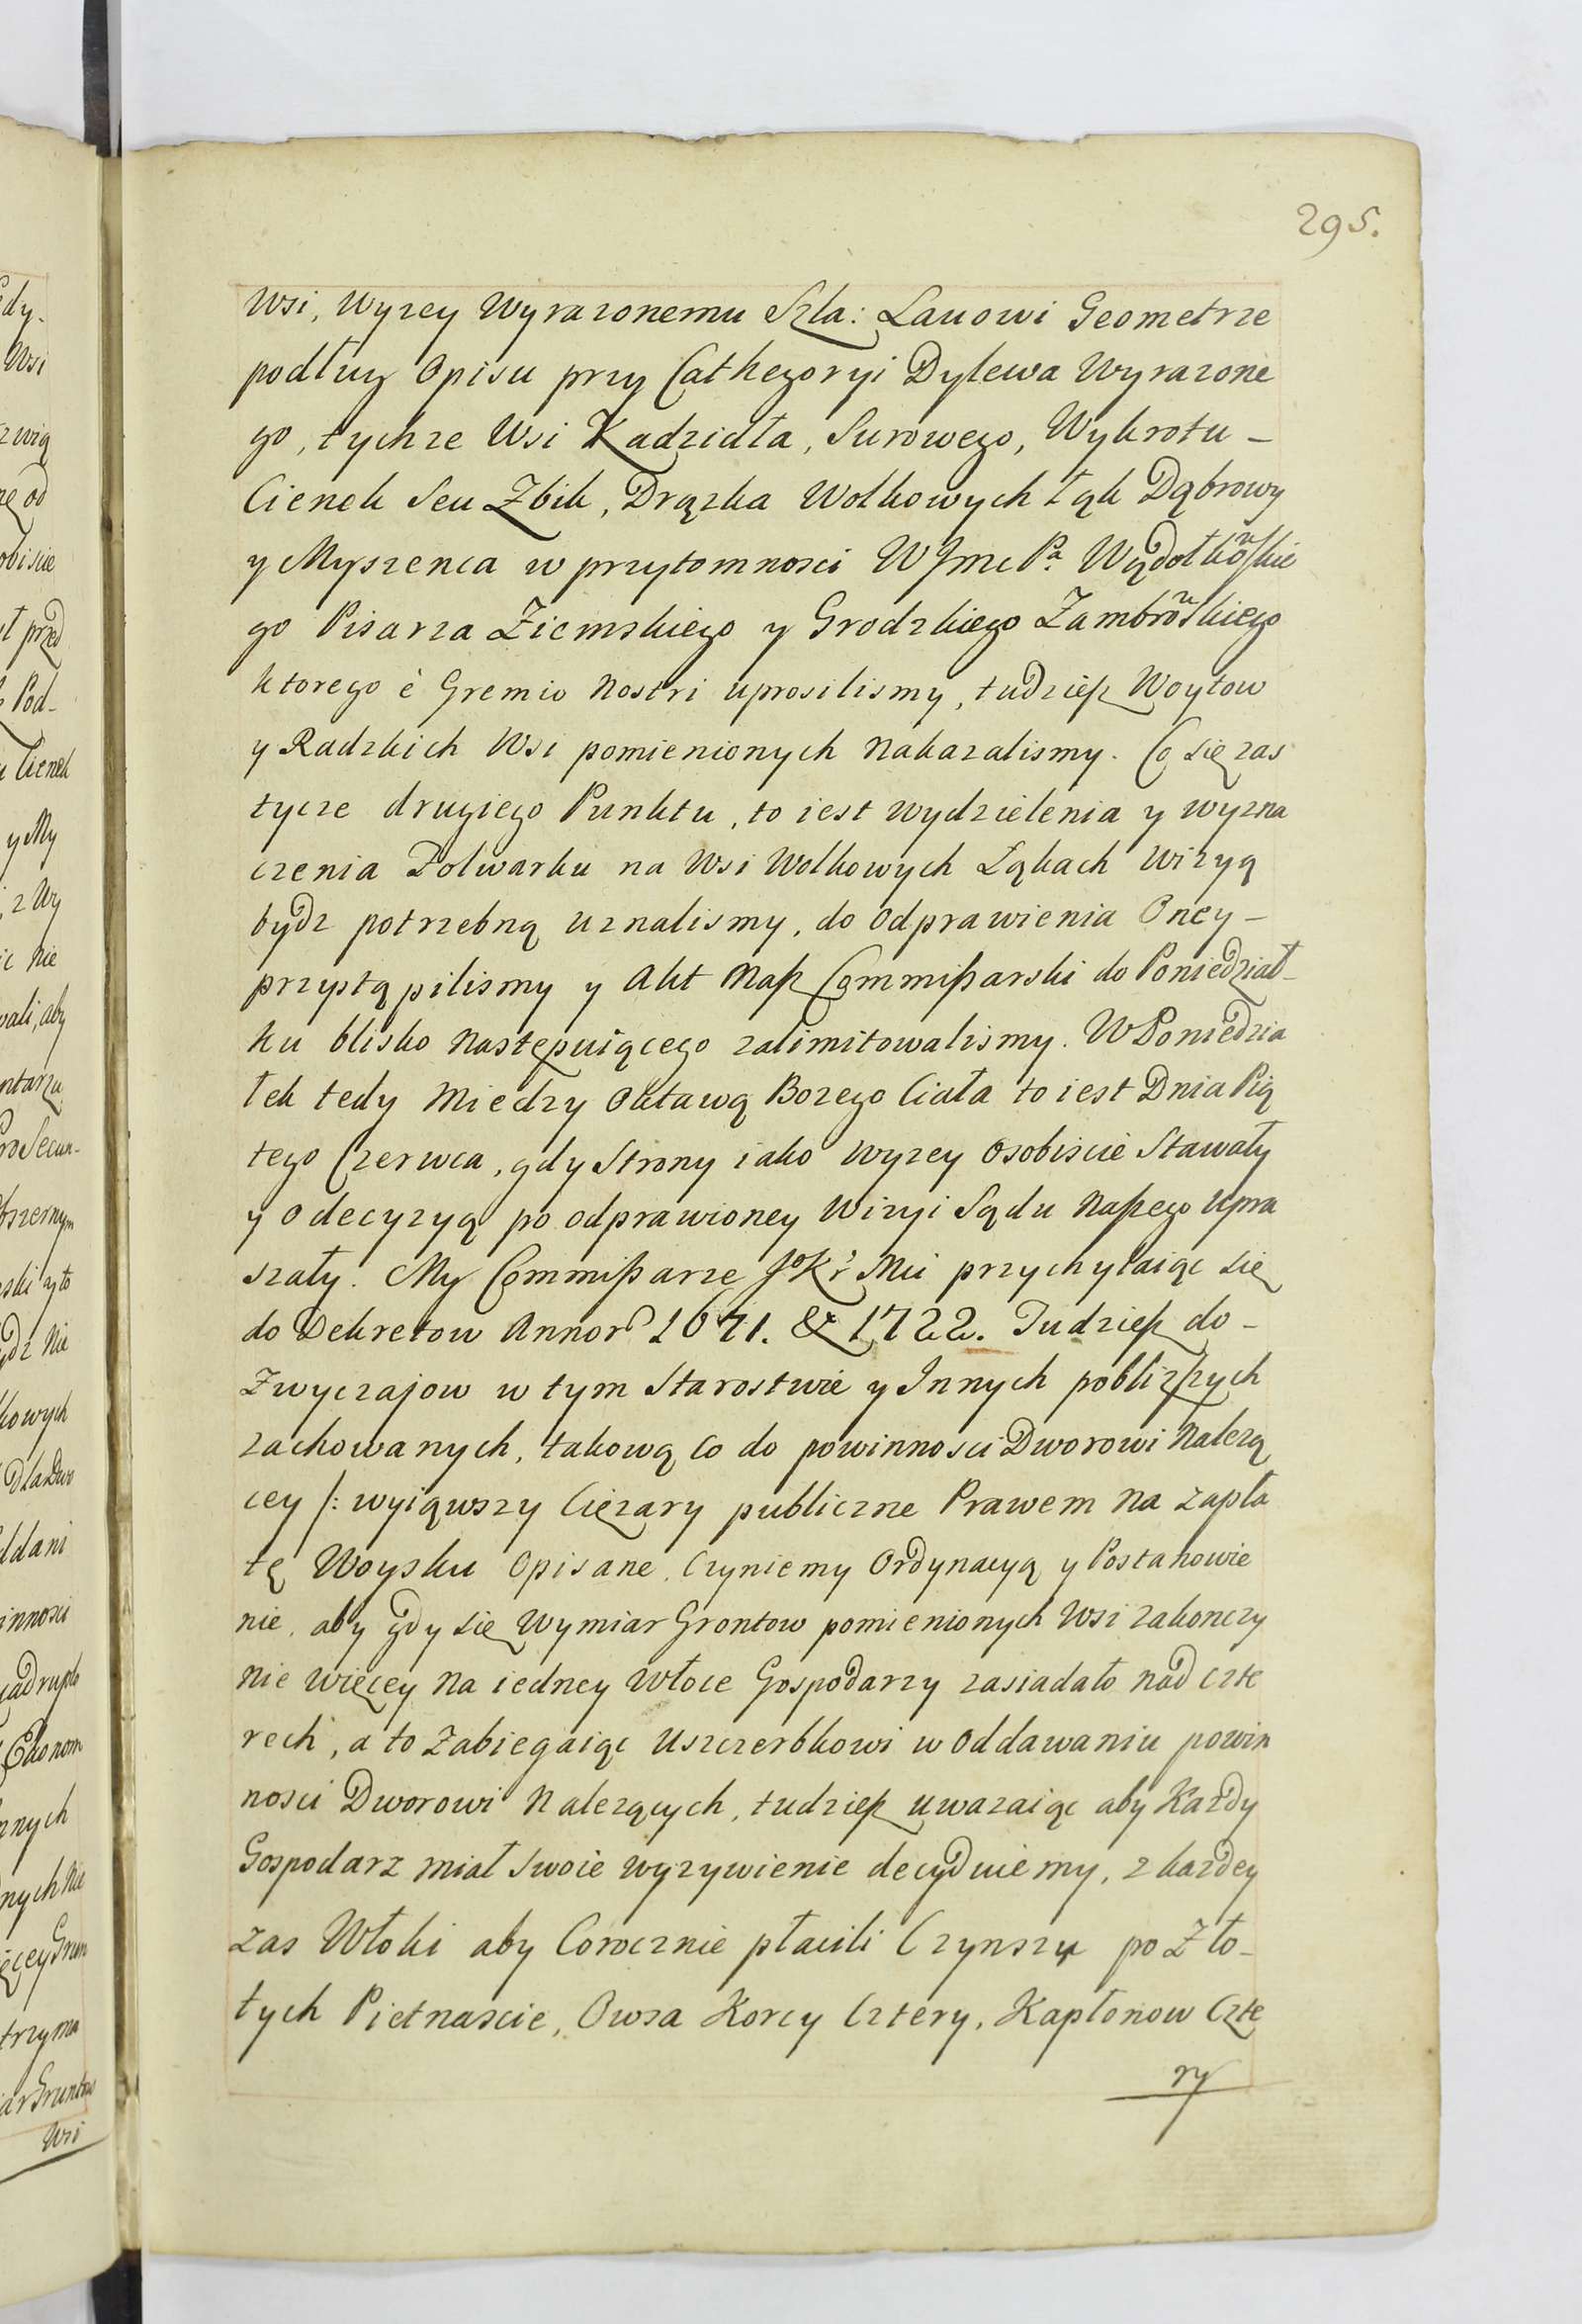 295.
Wsi, Wyzey Wyrazonemu Szla: Lauowi Geometrze
podług Opisu przy Cathegoryi Dylewa Wyrazone
go, tychze Wsi Kadzidła, Surowego, Wykrotu –
Cienek Seu Zbik, Drązka Wolkowych Łąk Dąbrowy
y Myszenca w przytomnosci WJmc Pa Wądołkowskie
go Pisarza Ziemskiego y Grodzkiego Zambrowskiego
ktorego è Gremio Nostri uprosilismy, tudzież Woytow
y Radzkich Wsi pomienionych Nakazalismy. Co się zas
tycze drugiego Punktu, to iest wydzielenia y wyzna
czenia Folwarku na Wsi Wolkowych Łąkach Wizyą
bydz potrzebną uznalismy, do Odprawienia Oney –
przystąpilismy y Akt Naß Commißarski do Poniedział–
ku blisko Następuiącego zalimitowalismy. W Poniedzia
łek tedy Miedzy Oktawą Bozego Ciała to iest Dnia Pią
tego Czerwca, gdy Strony iako wyzey Osobiscie Stawały
y o decyzyą po odprawioney Wizyi Sądu Naßego Upra
szały. My Commißarze JoKr Mci przychylaiąc się
do Dekretow Annor 1671. & 1722. Tudzież do –
Zwyczajow w tym Starostwie y Innych poblizßych
zachowanych, takową co do powinnosci Dworowi Nalezą
cey /: wyiąwszy Ciężary publiczne Prawem Na zapła
tę Woysku Opisane, Czyniemy Ordynacyą y Postanowie
nie, aby gdy się Wymiar Grontow pomienionych Wsi zakonczy
Nie więcey Na iedney Włoce Gospodarzy zasiadało nad czte
rech, a to Zabiegaiąc Uszczerbkowi w Oddawaniu powin
nosci Dworowi Nalezących, tudzież uwazaiąc aby Kazdy
Gospodarz miał swoie wyzywienie decyduiemy, z kazdey
zas Włoki aby Corocznie płacili Czynszu po Zło–
tych Pietnascie, Owsa Korcy Cztery, Kapłonow Czte
ry